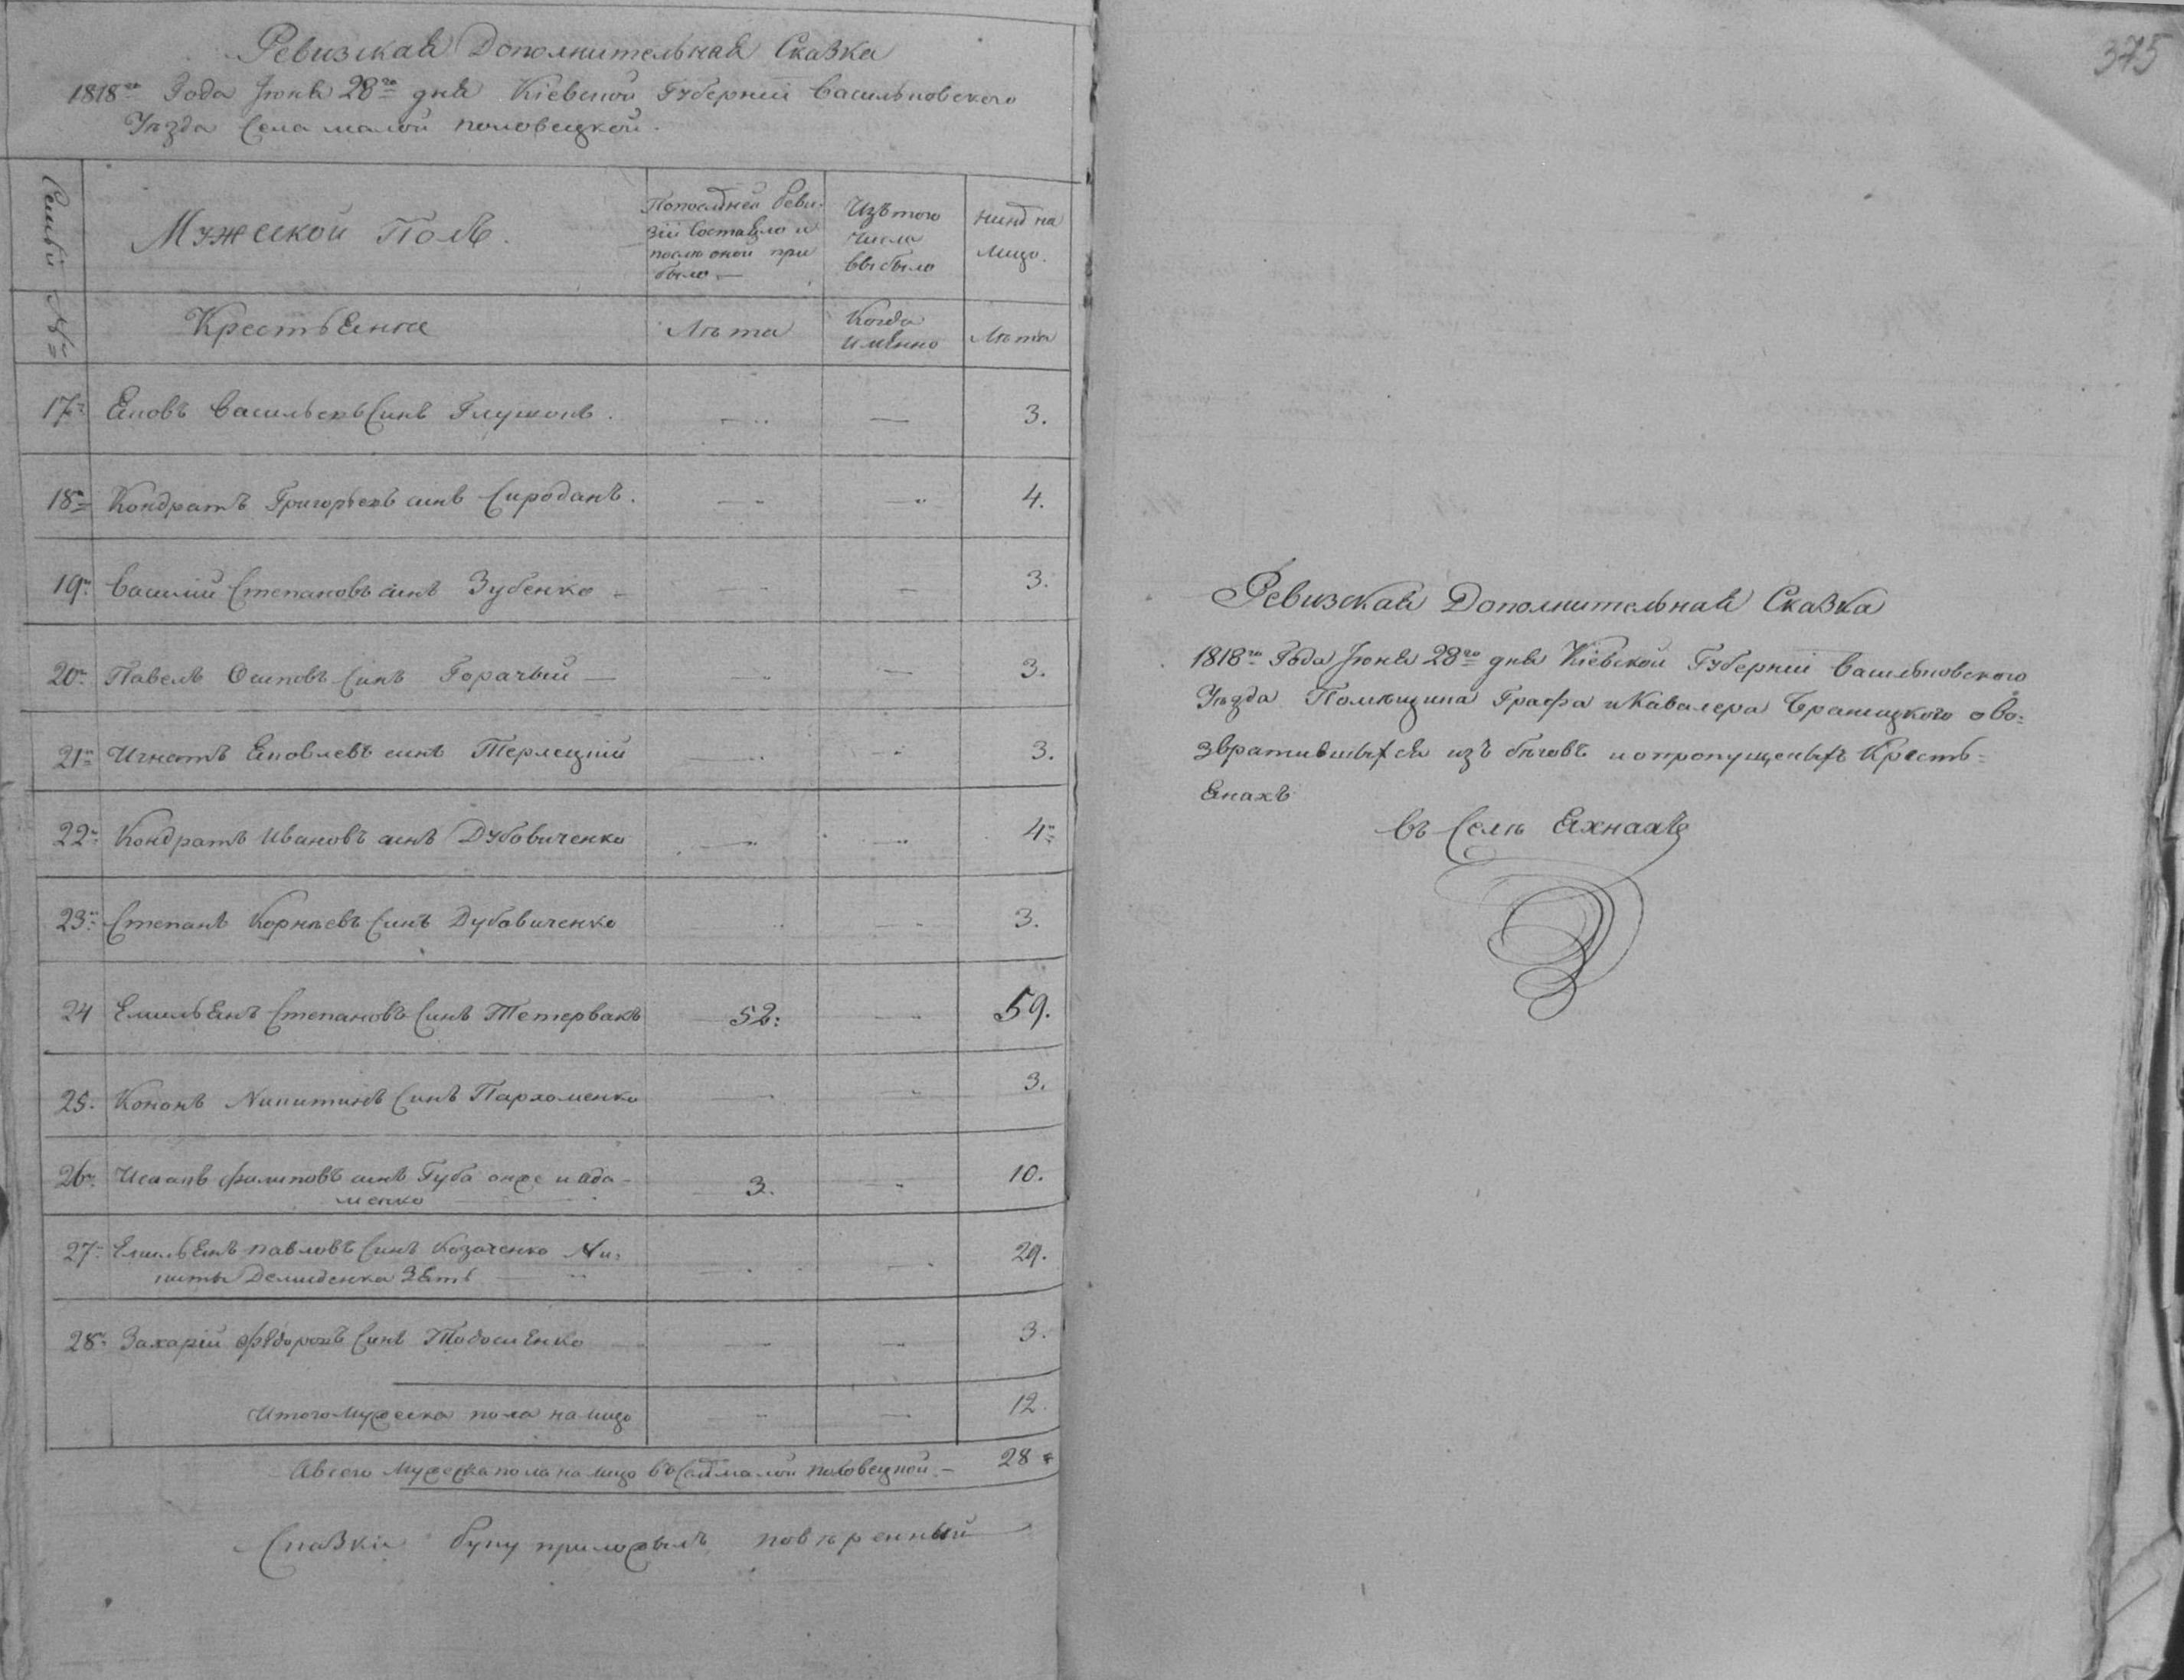 Ревизская Дополнительная Сказка
1818го Года Июня 28го дня Кіевской Губерніи Васильковского
Уѣзда Села малой половецкой.
Семьи №
Мужеской Полъ.
Попослѣдней Реви-
зіи Состаяло и
послѣ оной при
было —
Изъ того
Числа
выбыло
нинѣ на
лицо.
Крестьяне
Лѣта
Когда
имянно
Лѣта
17. Яковъ Васильевъ Синъ Глушокъ. 3.
18. Кондратъ Григорьевъ синъ Сироданъ. 4.
19. Василій Степановъ синъ Зубенко 3.
20. Павелъ Осиповъ Синъ Горачый 3.
21. Игнатъ Яковлевъ синъ Терлецкій 3.
22. Кондратъ Ивановъ синъ Дубовиченко 4
23. Степанъ Корнѣевъ Синъ Дубовиченко 3.
24 Емильянъ Степановъ Синъ Тетервакъ 52: 59.
25. Кононъ Никитинъ Синъ Пархоменко 3.
26. Исакъ Филиповъ синъ Губа онже и Ада- 3. 10.
менко
27. Емильянъ Павловъ Синъ Козаченко Ни- 29.
киты Демиденка Зять
28. Захарій Федоровъ Синъ Тодосиенко 3.
Итого Мужеска пола на лицо 12.
А всего Мужеска пола на лицо въ Селѣ малой половецкой. — 28
Сказки руку приложылъ повѣренный
375
Ревизская Дополнительная Сказка
1818го Года Июня 28го дня Кіевской Губерніи Васильковского
Уѣзда Помѣщика Графа и Кавалера Браницкого о Во-
звратившихся изъ бѣговъ и опропущеныхъ Кресть-
янахъ
Въ Селѣ Яхнахъ